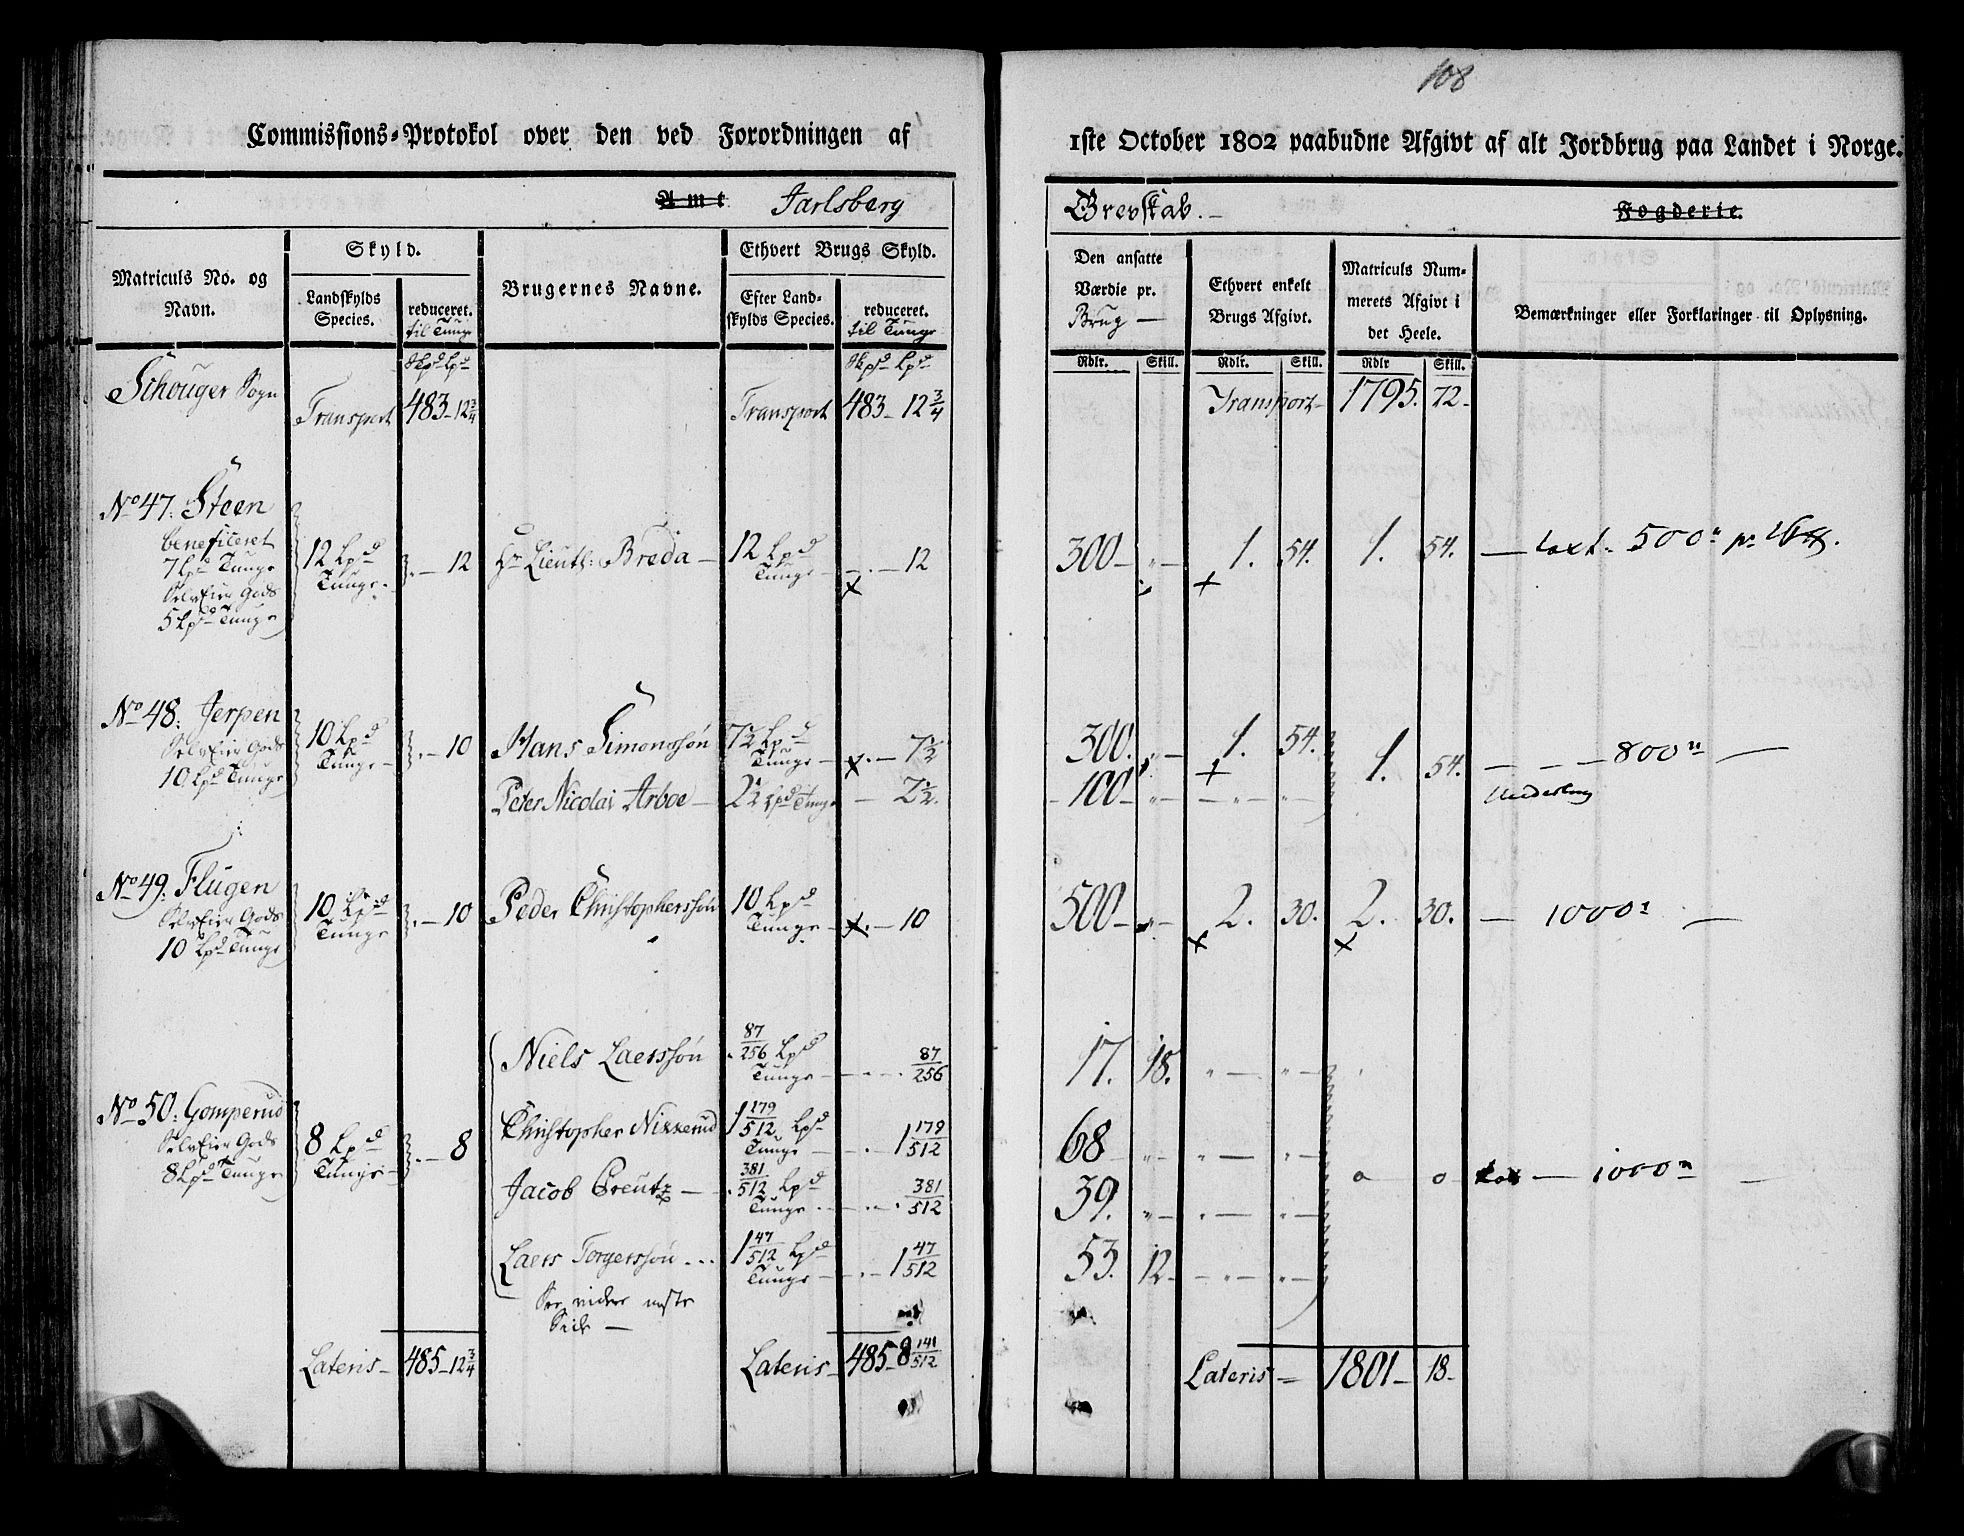 108
Commissions-Protokol over den ved Forordningen af 1ste October 1802 paabudne Afgivt af alt Jordbrug paa Landet i Norge.
Amt Jarlsberg Grevskab. Fogderie.
Matriculs No. og Navn.
Skyld.
Landskylds Species.
reduceret. til Tunge
Brugernes Navne.
Ethvert Brugs Skyld.
Efter Landskylds Species.
reduceret. til Tunge
Den ansatte Værdie pr. Brug
Ethvert enkelt Brugs Afgivt.
Matriculs Nummerets Afgivt i det Heele.
Bemærkninger eller Forklaringer til Oplysning.
Skpd Lpd Skpd Lpd Rdlr. Skill. Rdlr. Skill. Rdlr Skill.
Schouger Sogn Transport 483 - 12 3/4 Transport 483 - 12 3/4 Transport 1795. 72
No 47. Steen
beneficeret
7 Lpd Tunge
SelvEier Gods
5 Lpd Tunge
12 Lpd Tunge 12 Hr Lieutn: Breda 12 Lpd Tunge 12 300 1. 54. 1. 54. taxt. 500
No 48. Jerpen
SelvEier Gods
10 Lpd Tunge
10 Lpd Tunge 10 Hans Simonssøn 7½ Lpd Tunge 7½ 300. 1. 54. 1. 54. 800
Peter Nicolai Arboe 2½ Lpd Tunge 2½. 100 Underbrug
No 49. Flugen
SelvEier Gods
10 Lpd Tunge
10 Lpd Tunge 10 Peder Christopherssøn 10 Lpd Tunge 10 500 2. 30. 2. 30. 1000
No 50. Gomperud
SelvEier Gods
8 Lpd Tunge
8 Lpd Tunge 8
Niels Laerssøn 87/256 Lpd Tunge 87/256 17. 18.
Christopher Nizzerud 1 179/512 Lpd Tunge 1 179/512 68
Jacob Creutz 381/512 Lpd Tunge 381/512 39. o o 1000
Laers Torgerssøn 1 47/512 Lpd Tunge 1 47/512 53. 12
See videre neste Side
Lateris 485 - 12 3/4 Lateris 485 - 8 141/512 Lateris 1801 18